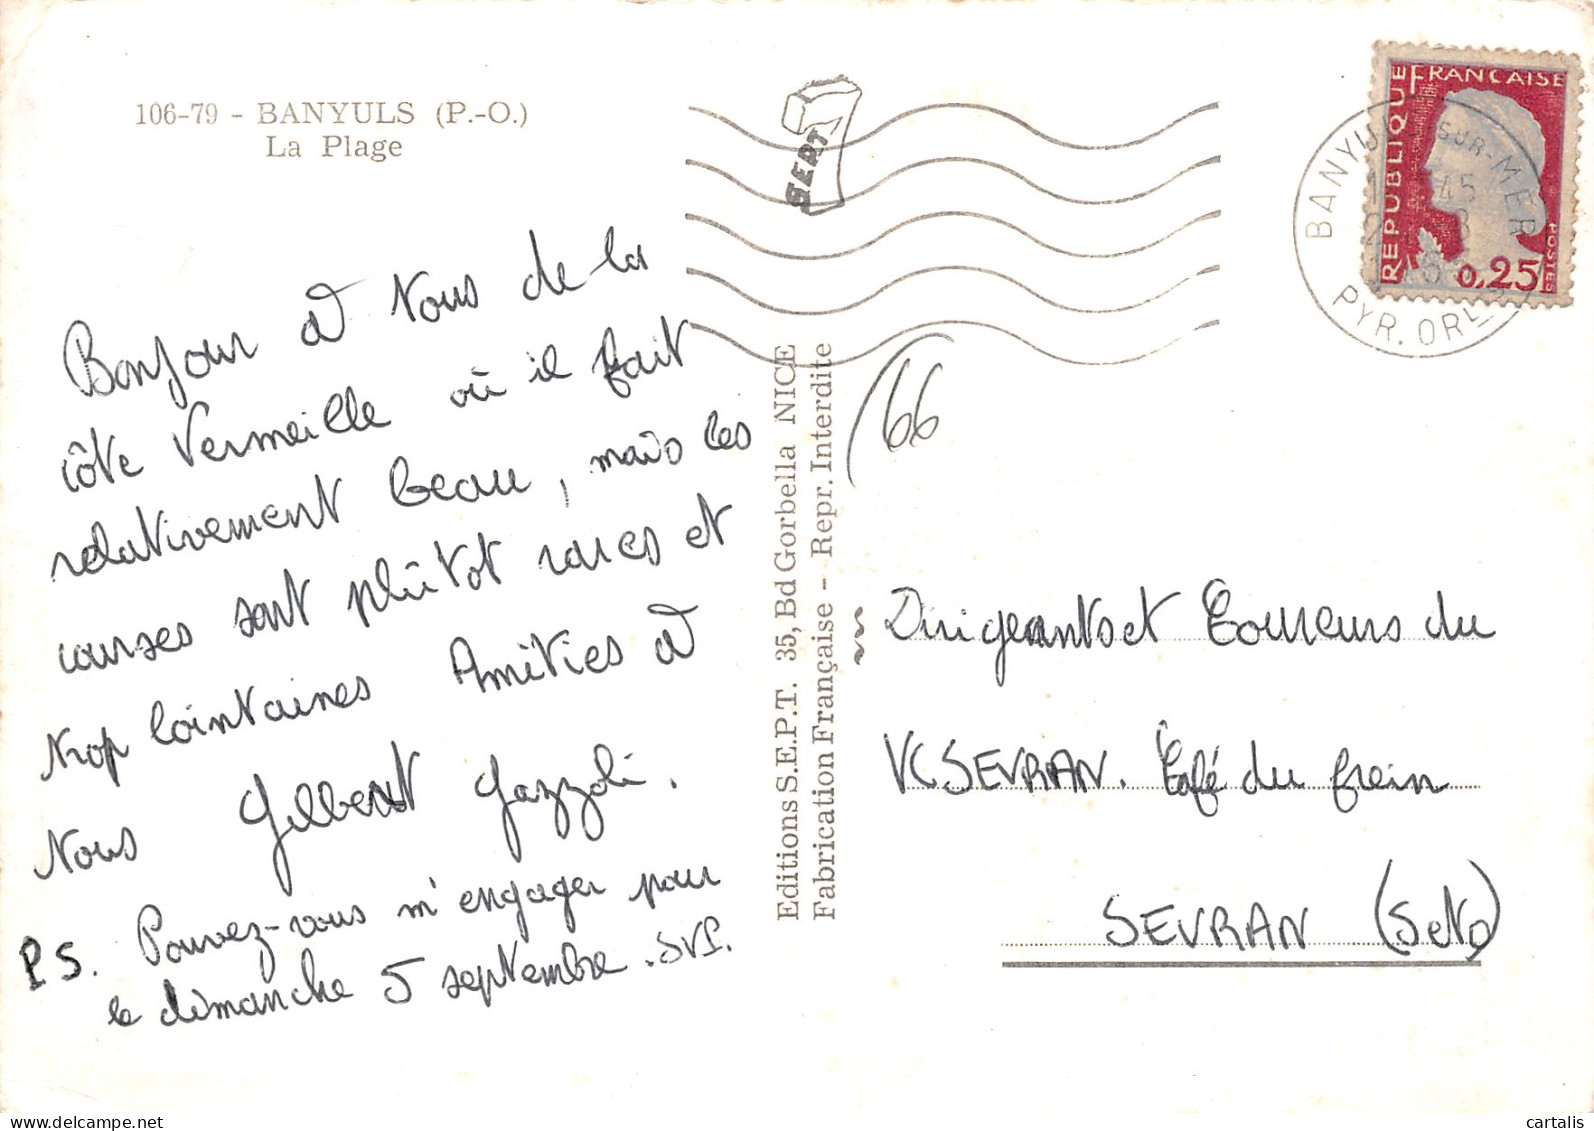 106-79 - BANYULS (P.-O.)
La Plage
SEPT
RÉPUBLIQUE FRANÇAISE
POSTES
0,25
BANYULS-SUR-MER
PYR. ORLES
Bonjour à Vous de la
côte Vermeille où il fait
relativement beau, mais les
courses sont plûtot rares et
trop lointaines Amitiés à
Vous Gilbert Gazzoli.
P.S. Pouvez-vous m'engager pour
le dimanche 5 septembre. SVP.
Editions S.E.P.T. 35, Bd Gorbella NICE
Fabrication Française - Repr. Interdite
(66
Dirigeants et Coureurs du
VC SEVRAN. Café du frein
SEVRAN (SetO)
cartalis
delcampe.net